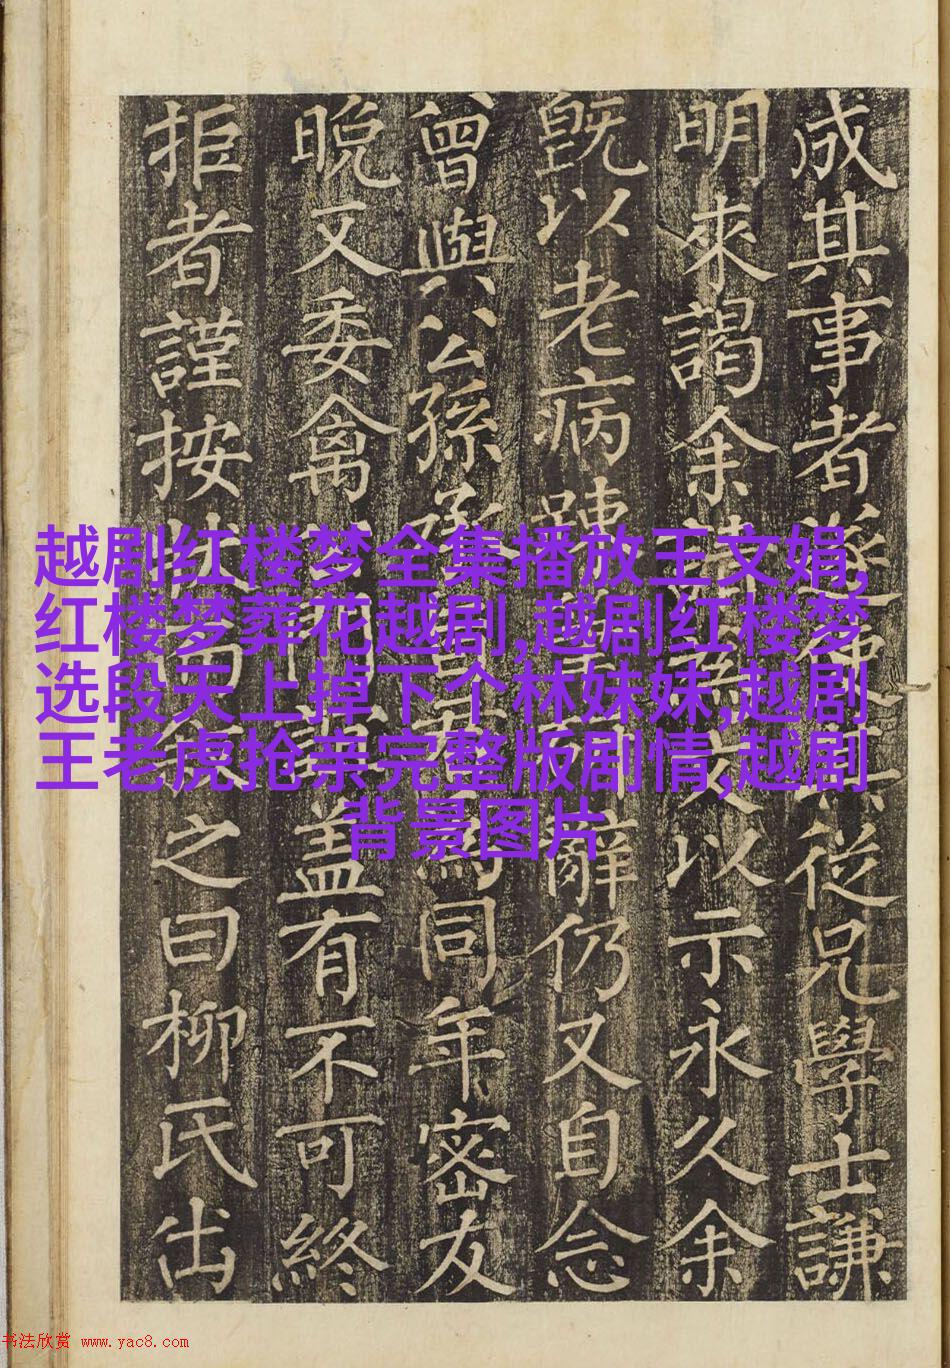 成其事者遂從兄學士謙
明來謁余請文以示永久余
既以老病辭仍又自念
曾與公孫同年密友
晚又委禽蓋有不可終
拒者謹按狀之曰柳氏出
越剧红楼梦全集播放王文娟,
红楼梦葬花越剧,越剧红楼梦
选段天上掉下个林妹妹,越剧
王老虎抢亲完整版剧情,越剧
背景图片
书法欣赏 www.yac8.com